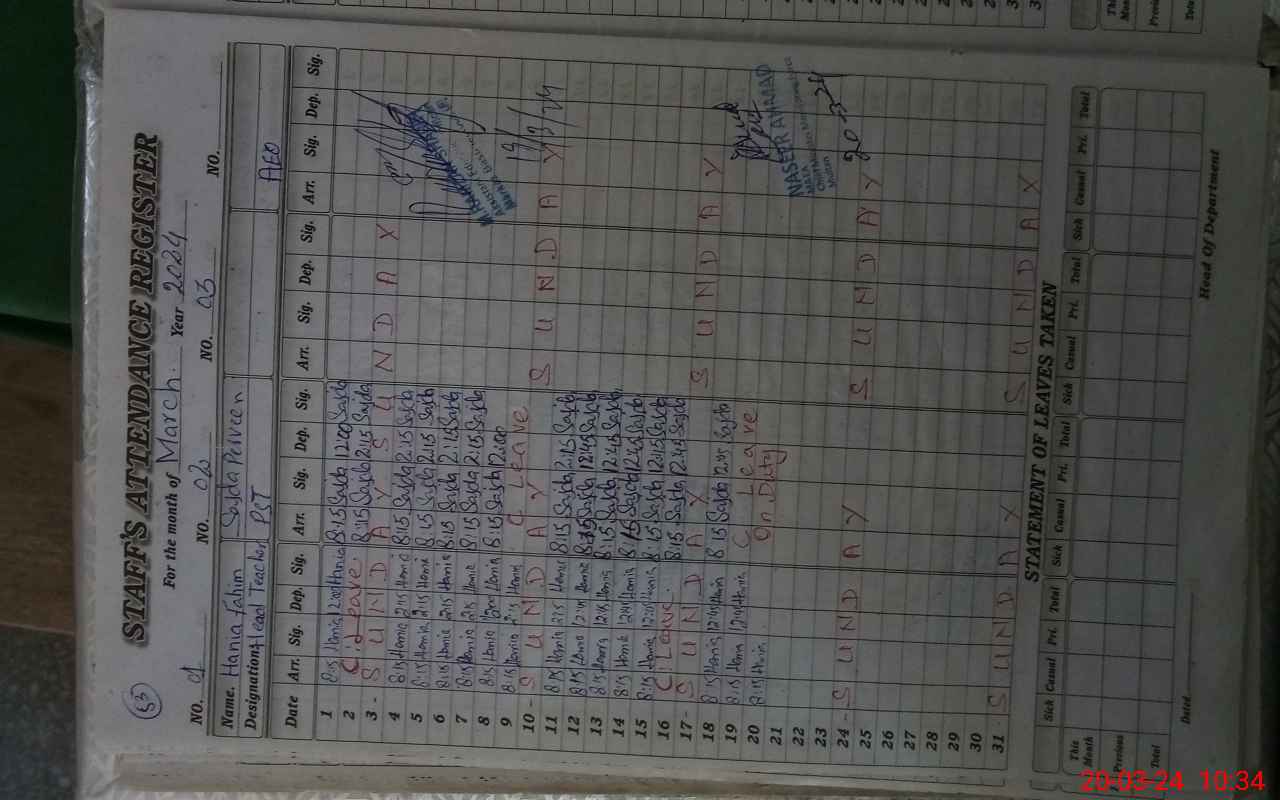 53
STAFF'S ATTENDANCE REGISTER
For the month of March. Year 2024
NO. 01 NO. 02 NO. 03 NO.
Name. Hania Fahim Sajda Perveen
Designation Head Teacher PST AEO
Date Arr. Sig. Dep. Sig. Arr. Sig. Dep. Sig. Arr. Sig. Dep. Sig. Arr. Sig. Dep. Sig.
1 8:15 Hania 12:00 Hania 8:15 Sajda 12:00 Sajda
2 C. Leave. 8:15 Sajda 2:15 Sajda
3 - S U N D A Y S U N D A Y
4 8:15 Hania 2:15 Hania 8:15 Sajda 2:15 Sajda
5 8:15 Hania 2:15 Hania 8:15 Sajda 2:15 Sajda
6 8:15 Hania 2:15 Hania 8:15 Sajda 2:15 Sajda
7 8:15 Hania 2:15 Hania 8:15 Sajda 2:15 Sajda
8 8:15 Hania Hania 8:15 Sajda 12:00
9 8:15 Hania 2:15 Hania C Leave
10 - S U N D A Y S U N D A Y
11 8:15 Hania 2:15 Hania 8:15 Sajda 2:15 Sajda
12 8:15 Hania Hania 8:15 Sajda 12:45 Sajda
13 8:15 Hania 12:45 Hania 8:15 Sajda 12:45 Sajda
14 8:15 Hania 12:45 Hania 8:15 Sajda 12:45 Sajda
15 8:15 Hania Hania 8:15 Sajda 12:45 Sajda
16 C. Leave. 8:15 Sajda 12:45 Sajda
17 - S U N D A Y S U N D A Y
18 8:15 Hania 12:45 Hania 8:15 Sajda 12:45 Sajda
19 8:15 Hania 12:45 Hania C Leave
20 8:15 Hania On Duty
21
22
23
24 - S U N D A Y S U N D A Y
25
26
27
28
29
30
31 - S U N D A Y S U N D A Y
13/3/24
NASEER AHMAD
20-3-24
STATEMENT OF LEAVES TAKEN
Sick Casual Pri. Total Sick Casual Pri. Total Sick Casual Pri. Total Sick Casual Pri. Total
This Month
Previous
Total
Dated
Head Of Department
20-03-24 10:34